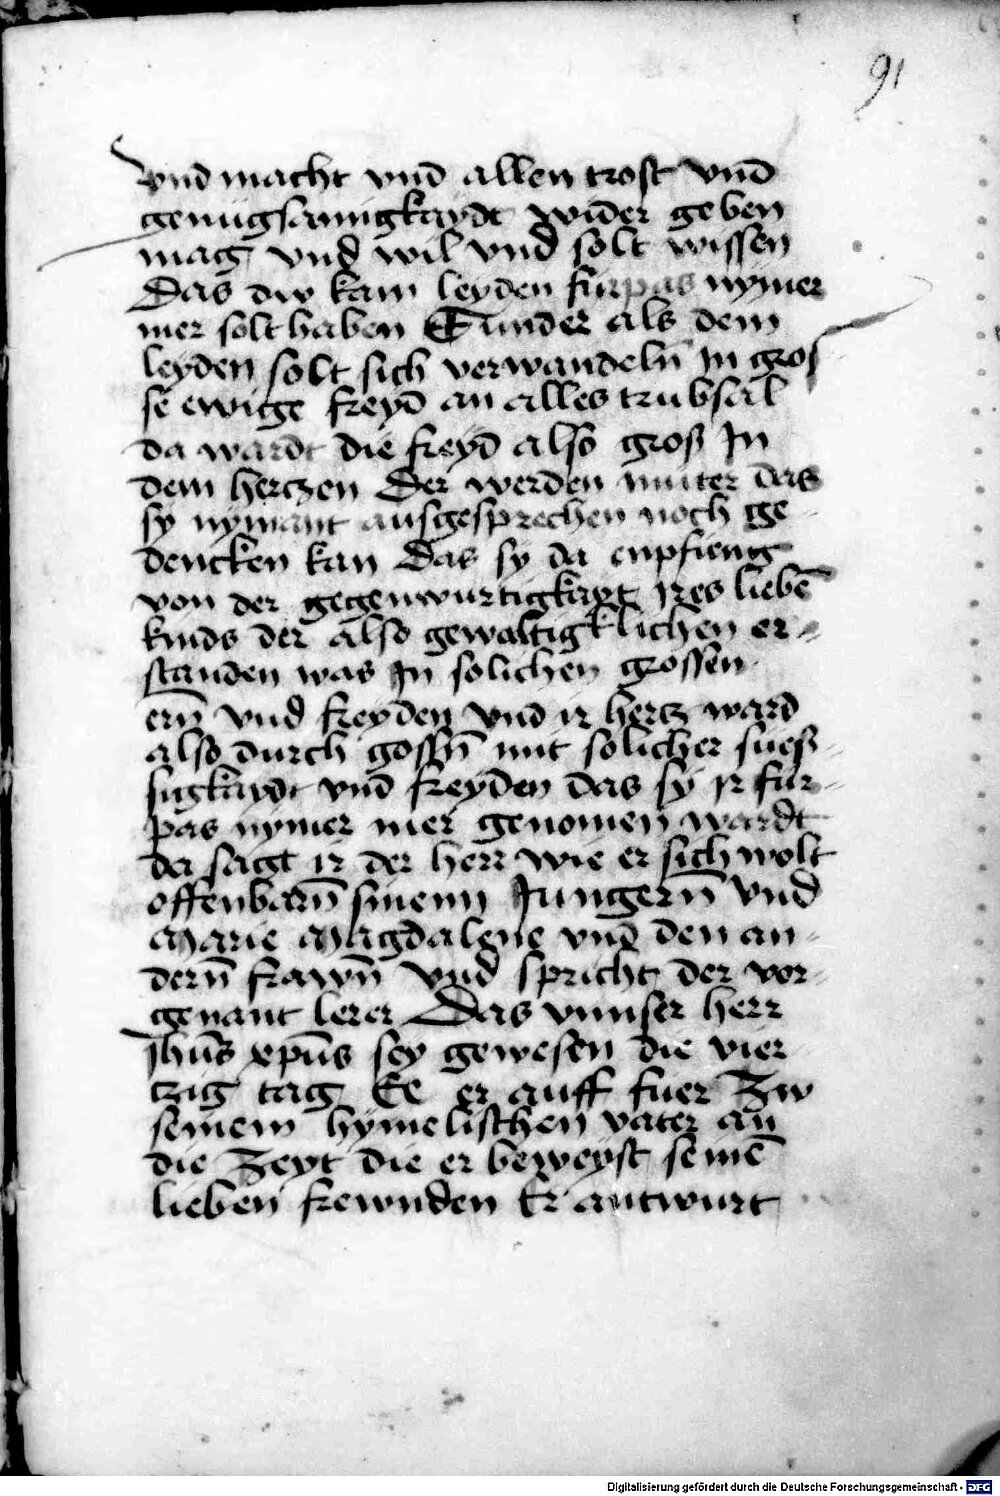 91
vnd macht vnd allen trost vnd
genugsamigkaydt wider geben
mag vnd wil vnd solt wissen
Das dw kain leyden furpas nymer
mer solt haben Sunder als dem
leyden solt sich verwandeln̄ In gros
se ewige freyd an alles trubsal
da wardt die freyd also groß In
dem hertzen Der werden muter das
sy nymant ausgesprechen noch ge-
dencken kan Das sy da enpfieng
von der gegenwurtigkayt yres liebē
kinds der also gewaltigklichen er-
standen was In solichen grossen
ern̄ vnd freyden vnd ir hertz ward
also durch gossn̄ mit solicher sueß-
sigkaydt vnd freyden das sy yr fur-
pas nymer mer genomen wardt
da sagt ir der herr wie er sich wolt
offenbarn̄ sinenn Jungern̄ vnd
Marie Magdalene vnd den an-
dern̄ frawn̄ vnd spricht der vor-
genant lerer Das vnnser herr
Jhūs xpūs sey gewesen die vier-
tzig tag Ee er auff fuer Zw
seinem hymelischen vater an
die Zeyt die er beweyst seinē
lieben frewnden Er antwurt
Digitalisierung gefördert durch die Deutsche Forschungsgemeinschaft - DFG